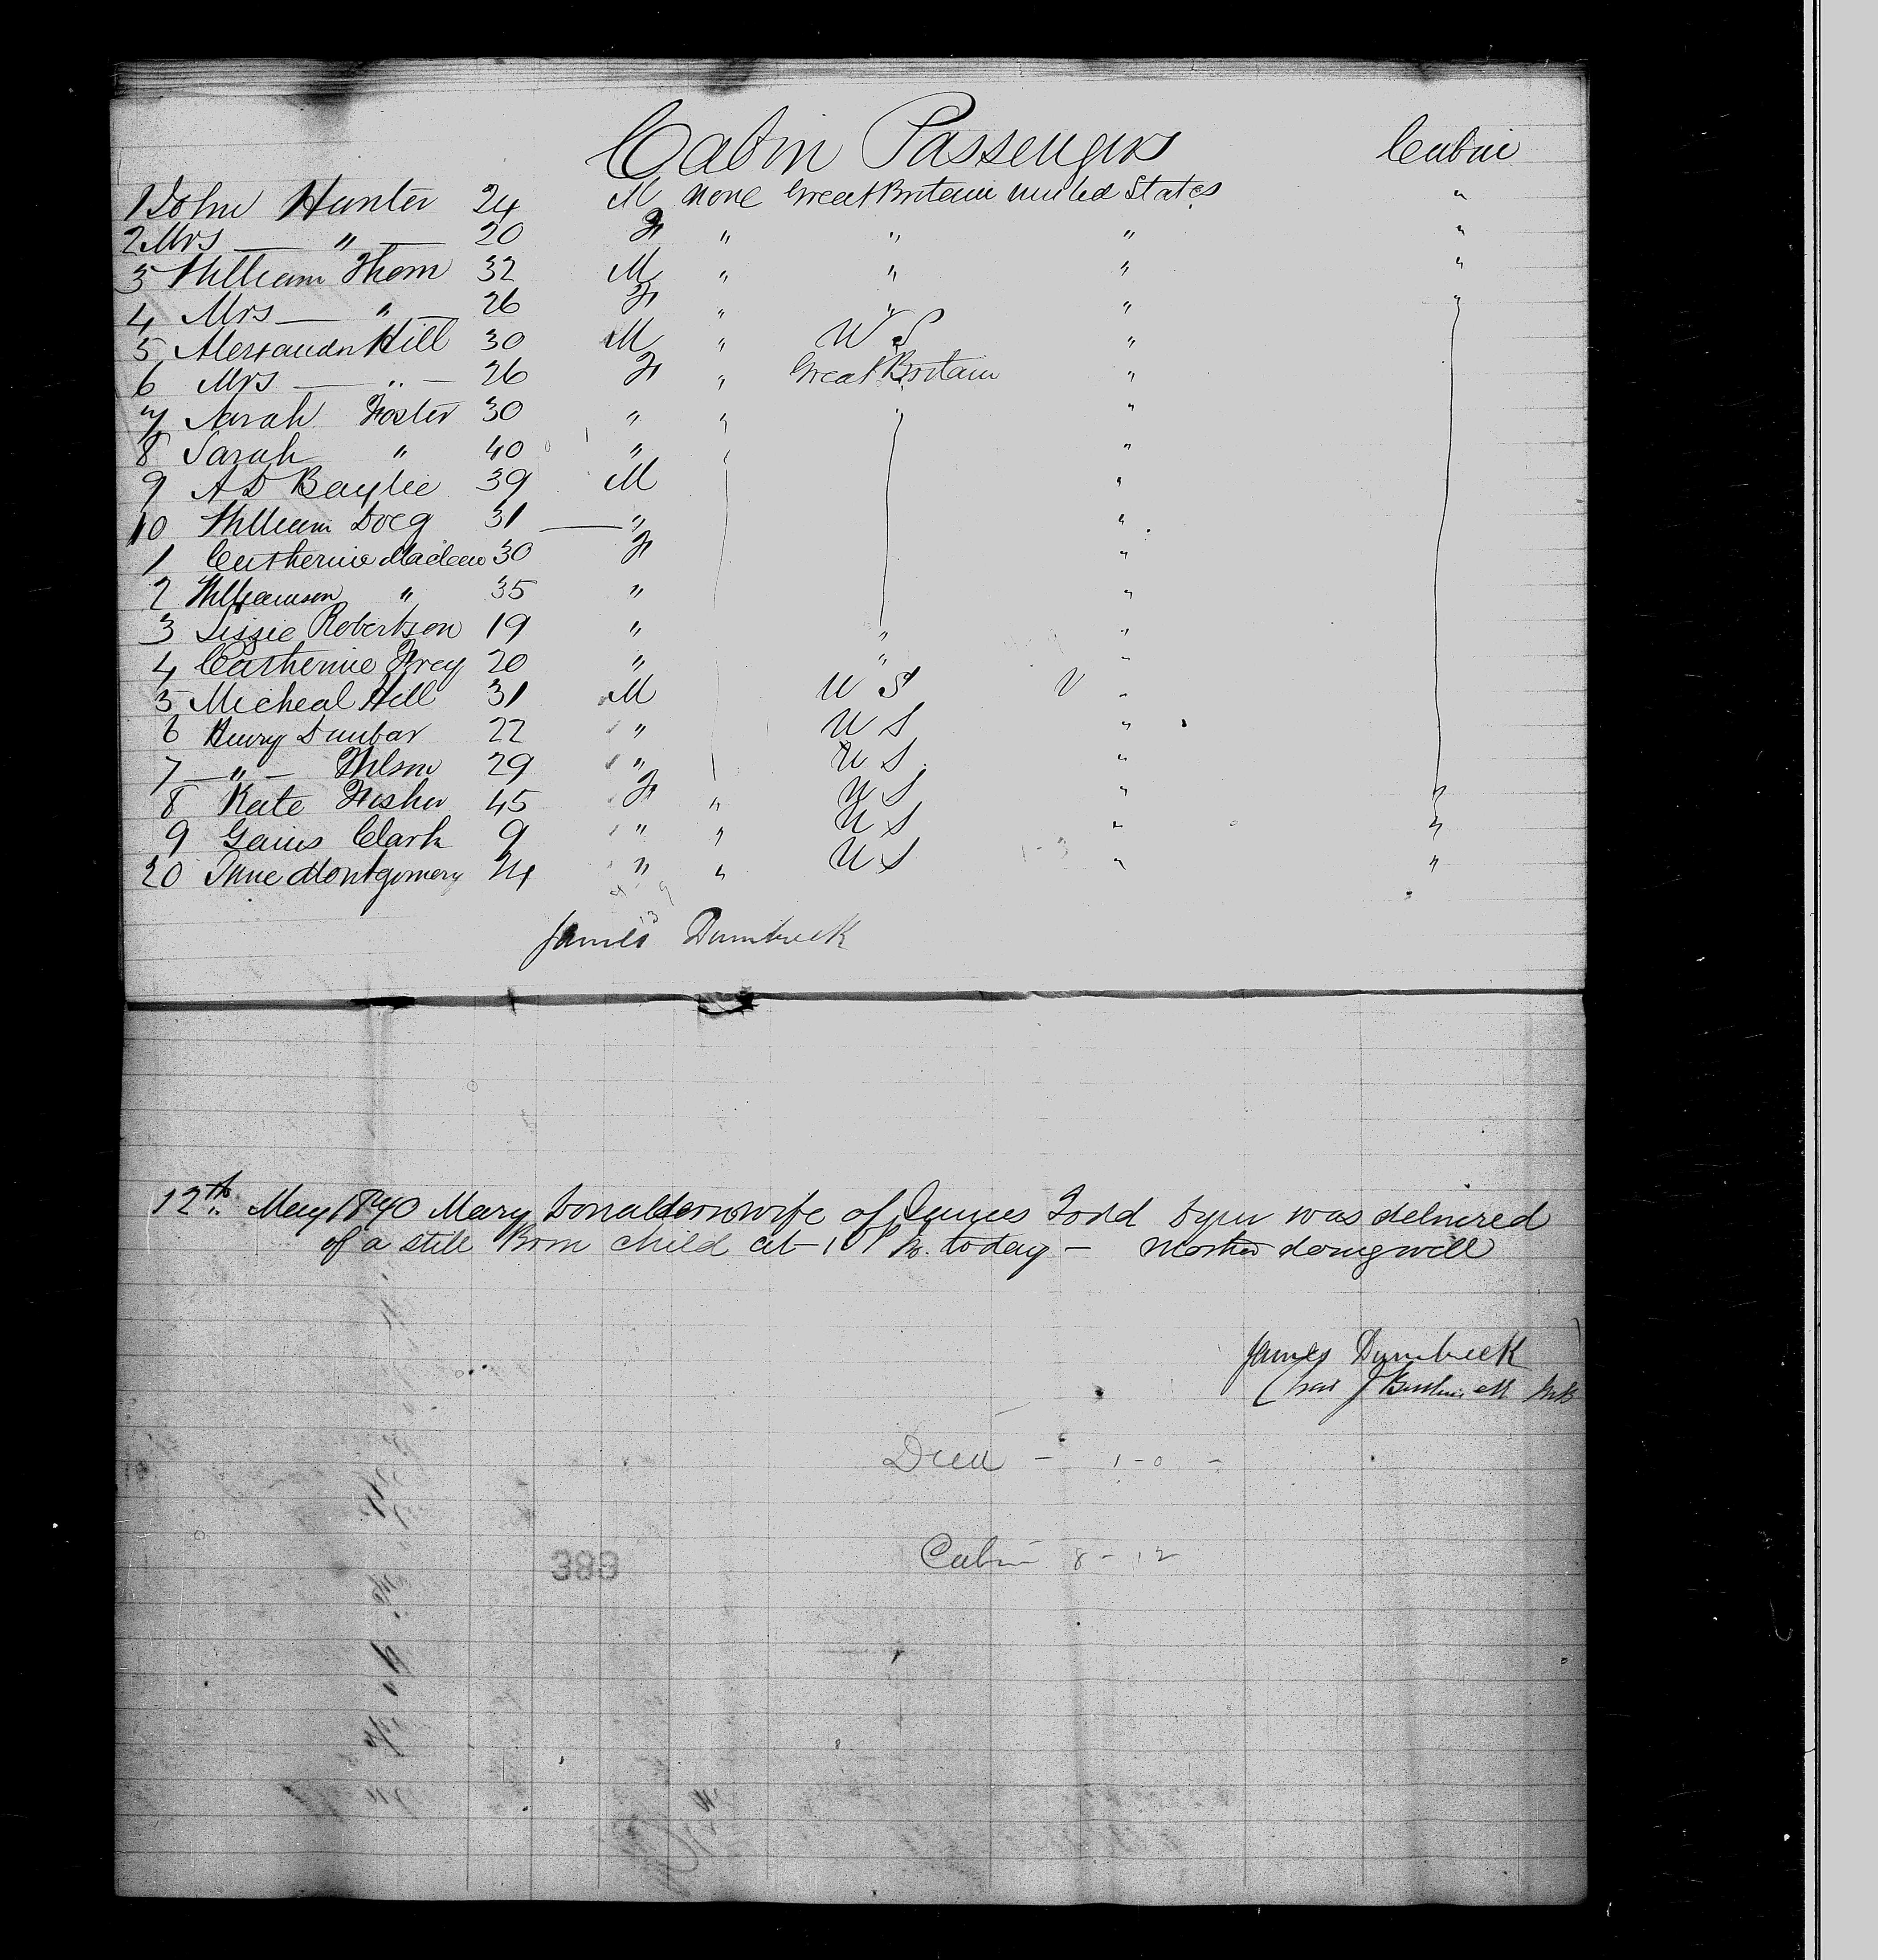 Cabin Passengers Cabin
1 John Hunter 24 M none Great Britain United States "
2 Mrs — " — 20 F " " " "
3 William Thom 32 M " " " "
4 Mrs — " — 26 F " " " "
5 Alexander Hill 30 M " U S "
6 Mrs — " — 26 F " Great Britain "
7 Sarah Foster 30 " " " "
8 Sarah " 40 " " "
9 A D Baylie 39 M "
10 William Doeg 31 — " "
1 Catherine 30 F "
2 Williamson " 35 " "
3 Lizzie Robertson 19 " " "
4 Catherine Frey 20 " " "
5 Micheal Hill 31 M U S "
6 Henry Dunbar 22 " U S "
7 — " — Wilson 29 " U S "
8 Kate Fisher 45 F " U S " "
9 Gaius Clark 9 " " U S " "
20 Jane Montgomery 24 " " U S " "
James
12th May 1870 Mary Donaldson wife of James Todd was delivered
of a still Born child at 10 P M. today — Mother doing well
James
Died - 1 - 0 -
Cabin 8 - 12
389